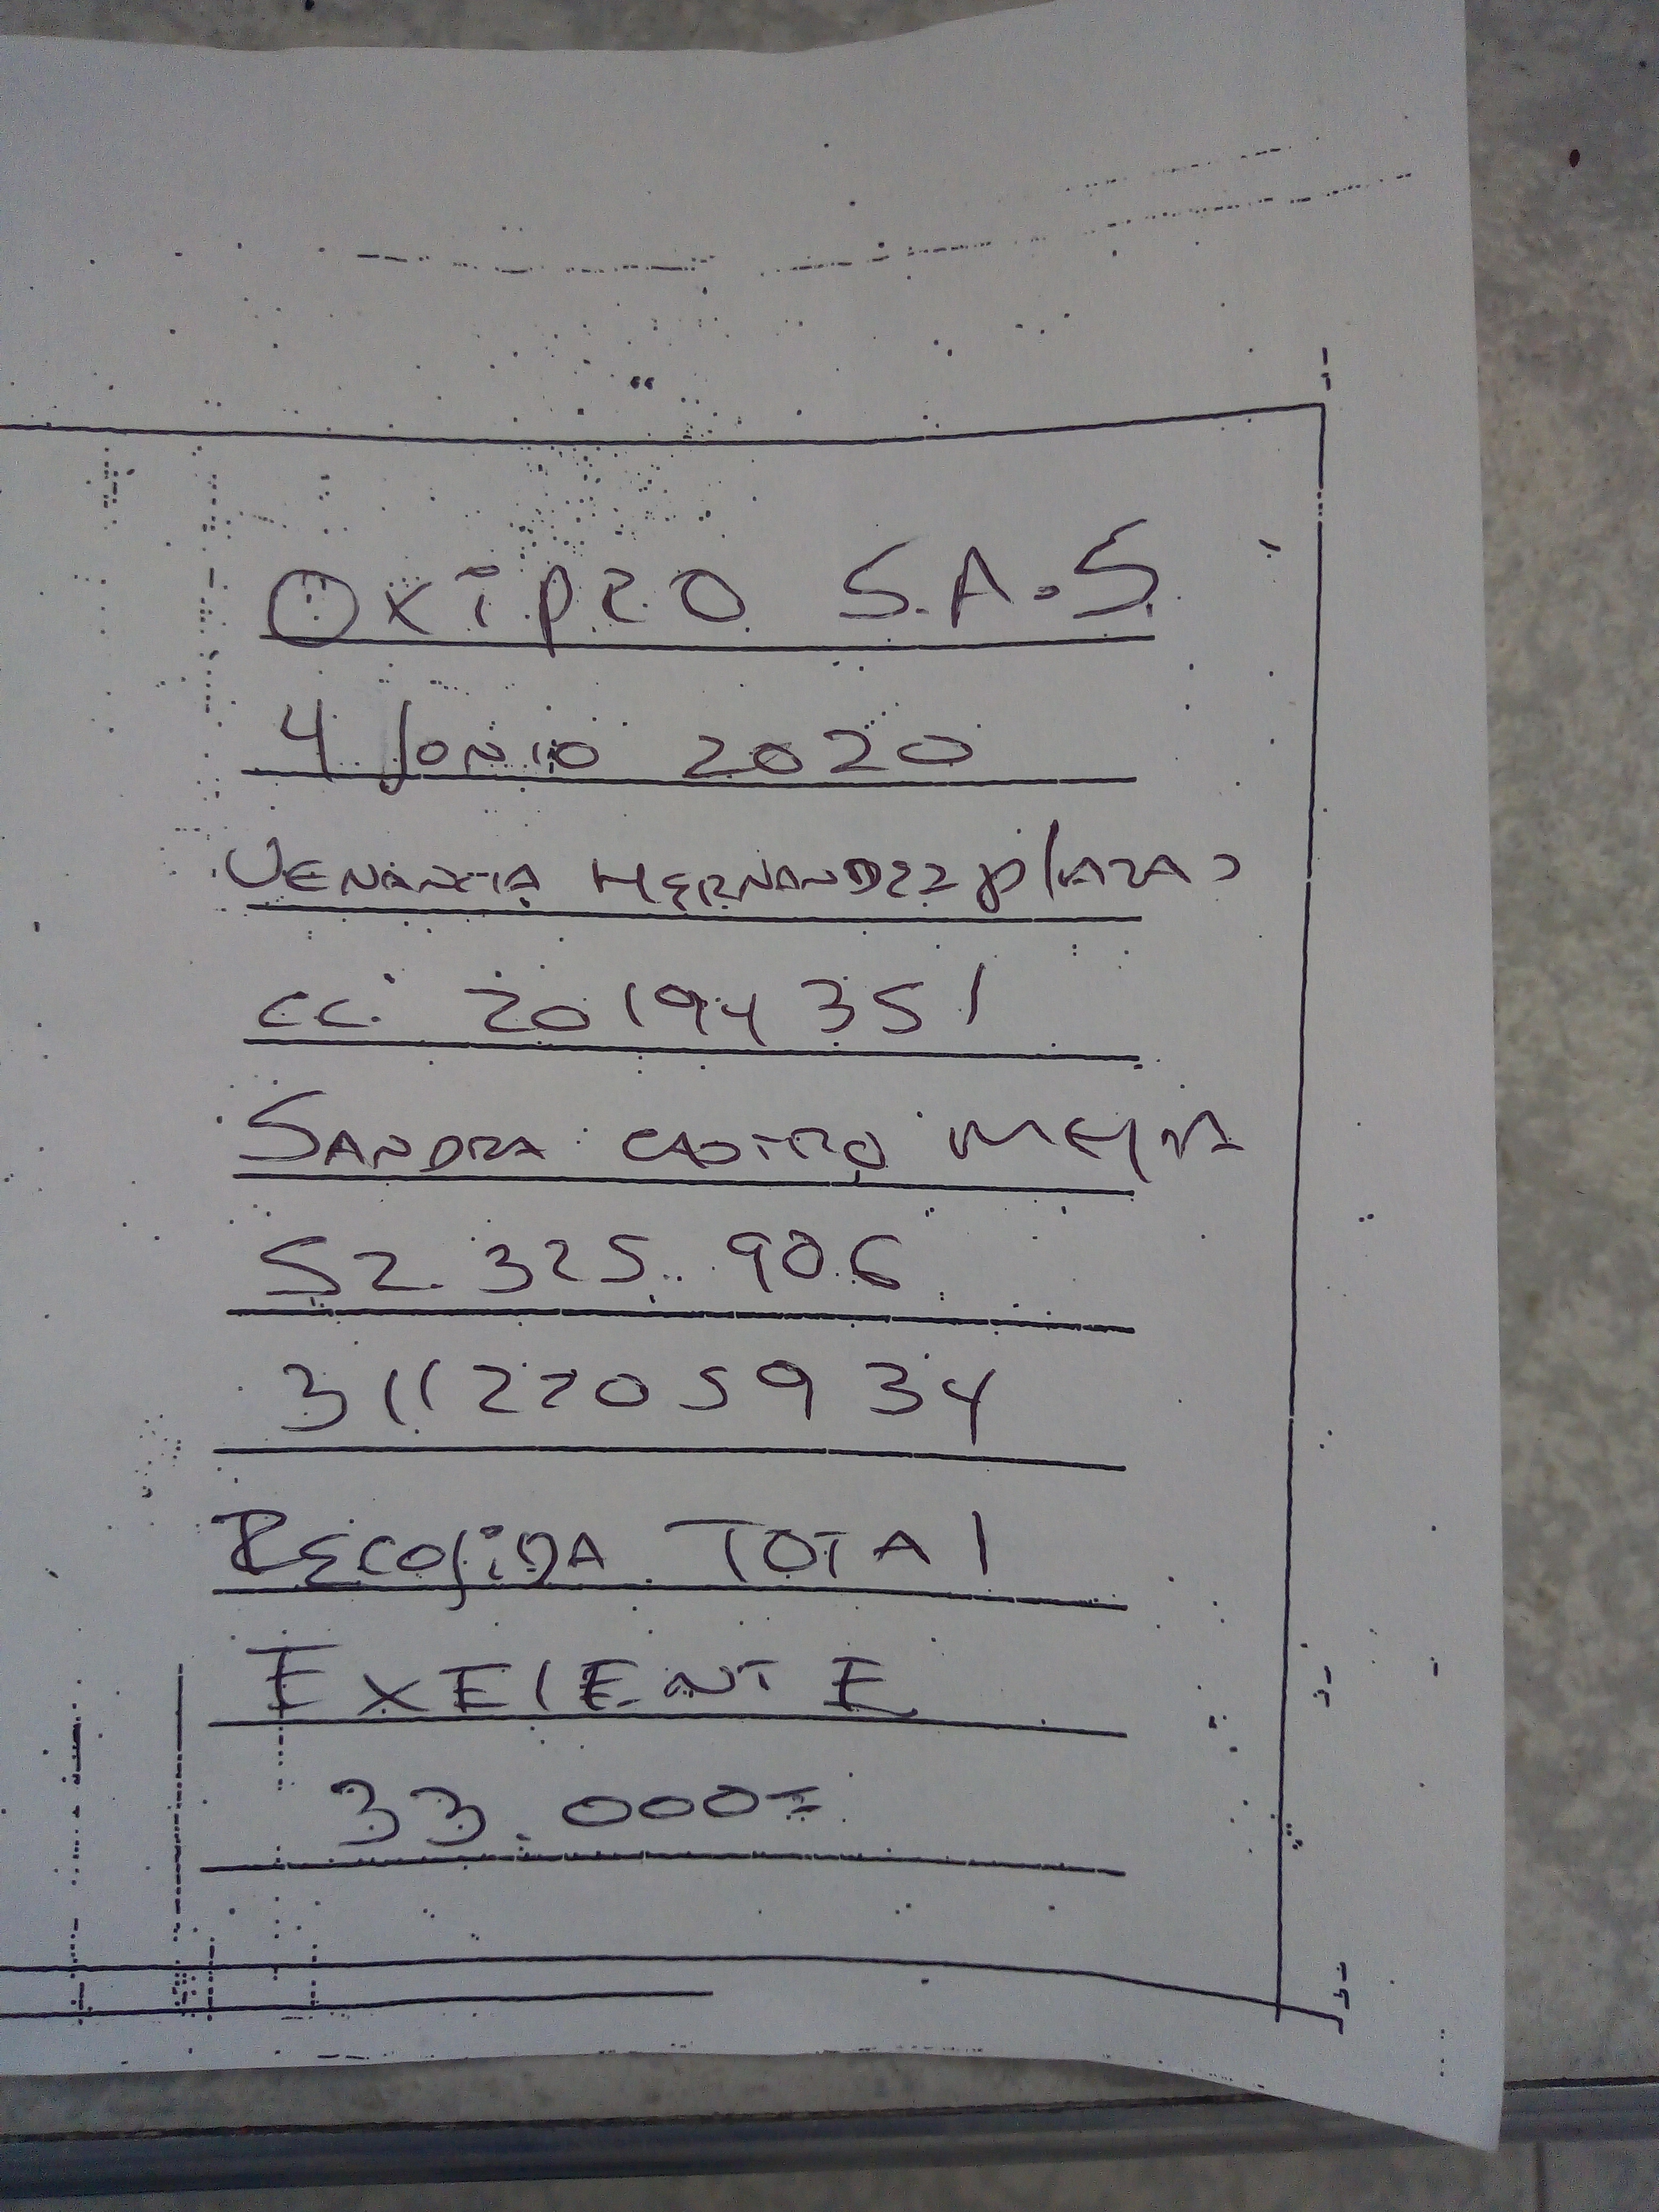 OXIPRO S.A.S.
4 JUNIO 2020
VENANCIA HERNANDEZ PLAZAS
CC. 20194351
SANDRA CASTRO MEJIA
52.325.906
3112205934
RECOJIDA TOTAL
EXELENTE
33.000=